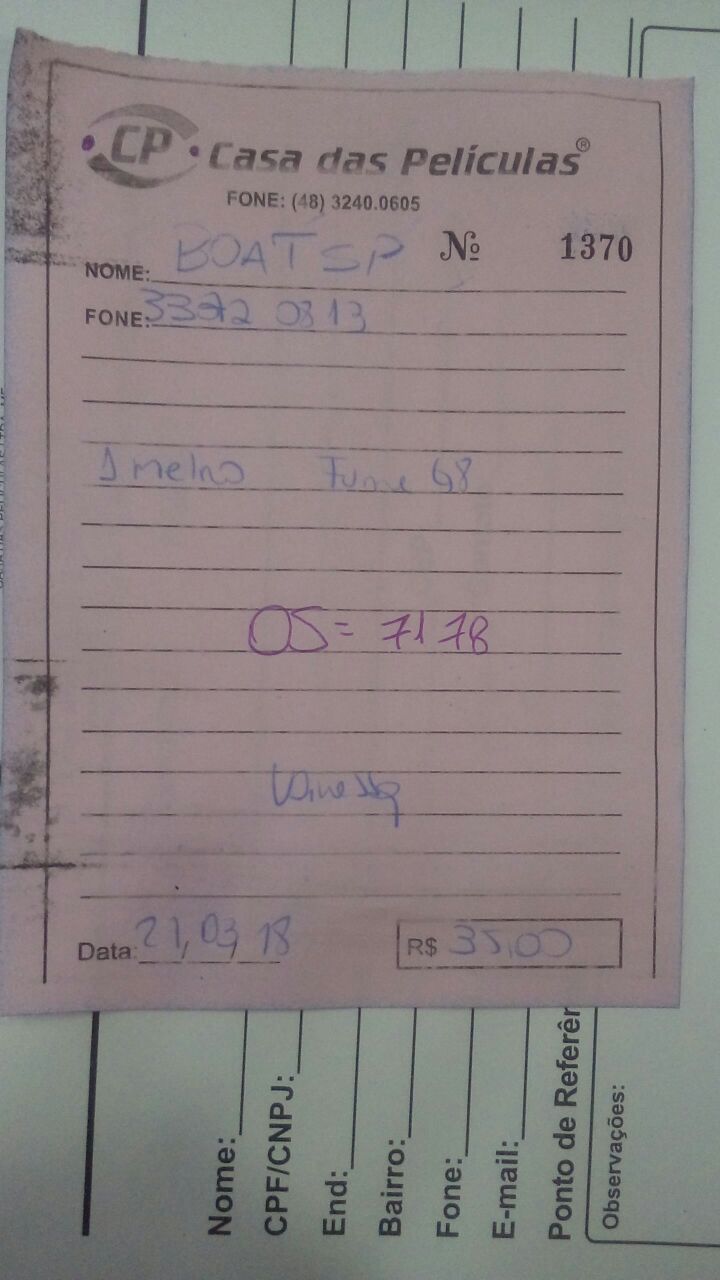 CP Casa das Películas®
FONE: (48) 3240.0605
Nº 1370
NOME: BOAT SP
FONE: 3372 0313
1 Fume G8
OS = 7178
Data: 21, 03, 18
R$ 35,00
Nome:
CPF/CNPJ:
End:
Bairro:
Fone:
E-mail:
Ponto de Referên
Observações: